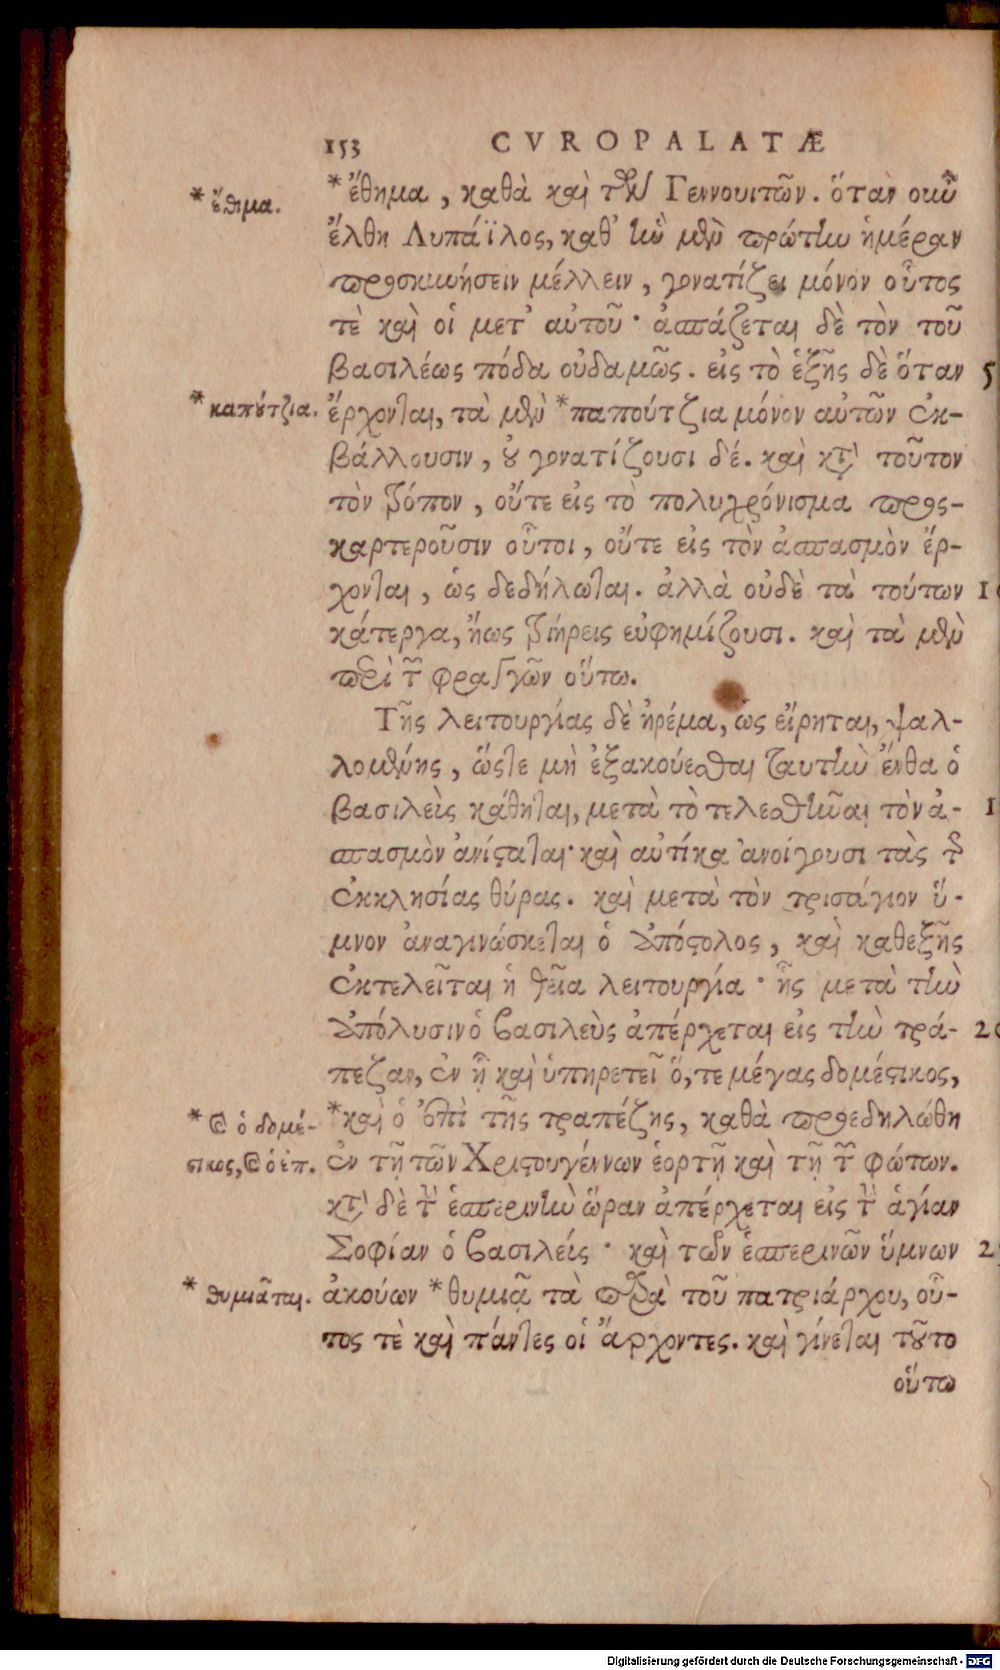 153 CVROPALATÆ
* ἔθιμα.
*ἔθημα, καθὰ καὶ τῶν Γεννουιτῶν. ὅταν οὖν
ἔλθη Λυπάϊλος, καθ' ἣν μὲν πρώτην ἡμέραν
προσκυνήσειν μέλλειν, γονατίζει μόνον οὗτος
τὲ καὶ οἱ μετ' αὐτοῦ· ἀσπάζεται δὲ τὸν τοῦ
βασιλέως πόδα οὐδαμῶς. εἰς τὸ ἑξῆς δὲ ὅταν 5
* καπούτζια.
ἔρχονται, τὰ μὲν *παπούτζια μόνον αὐτῶν ἐκ-
βάλλουσιν, οὐ γονατίζουσι δέ. καὶ κατὰ τοῦτον
τὸν τρόπον, οὔτε εἰς τὸ πολυχρόνισμα προς-
καρτεροῦσιν οὗτοι, οὔτε εἰς τὸν ἀσπασμὸν ἔρ-
χονται, ὡς δεδήλωται. ἀλλὰ οὐδὲ τὰ τούτων 1
κάτεργα, ἤως τριήρεις εὐφημίζουσι. καὶ τὰ μὲν
περὶ τῶν φραγγῶν οὕτω.
Τῆς λειτουργίας δὲ ἠρέμα, ὡς εἴρηται, ψαλ-
λομένης, ὥστε μὴ ἐξακούεσθαι ταυτὴν ἔνθα ὁ
βασιλεὶς κάθηται, μετὰ τὸ τελεσθῆναι τὸν ἀ- 1
σπασμὸν ἀνίσταται· καὶ αὐτίκα ἀνοίγουσι τὰς τῆς
ἐκκλησίας θύρας. καὶ μετὰ τὸν τρισάγιον ὕ-
μνον ἀναγινώσκεται ὁ ἀπόστολος, καὶ καθεξῆς
ἐκτελεῖται ἡ θεῖα λειτουργία· ἧς μετὰ τὴν
ἀπόλυσιν ὁ βασιλεὺς ἀπέρχεται εἰς τὴν τρά- 20
πεζαν, ἐν ᾗ καὶ ὑπηρετεῖ ὅ, τε μέγας δομέστικος,
* καὶ ὁ δομέ-
στικος, καὶ ὁ ἐπ.
*καὶ ὁ ἐπὶ τῆς τραπέζης, καθὰ προεδηλώθη
ἐν τῇ τῶν Χριστουγέννων ἑορτῇ καὶ τῇ τῶν φώτων.
κατὰ δὲ τὴν ἑσπερινὴν ὥραν ἀπέρχεται εἰς τὴν ἁγίαν
Σοφίαν ὁ βασιλείς· καὶ τῶν ἑσπερινῶν ὕμνων 2
* θυμιᾶται.
ἀκούων *θυμιᾷ τὰ παρὰ τοῦ πατριάρχου, οὗ-
τος τὲ καὶ πάντες οἱ ἄρχοντες. καὶ γίνεται τοῦτο
οὕτω
Digitalisierung gefördert durch die Deutsche Forschungsgemeinschaft - DFG